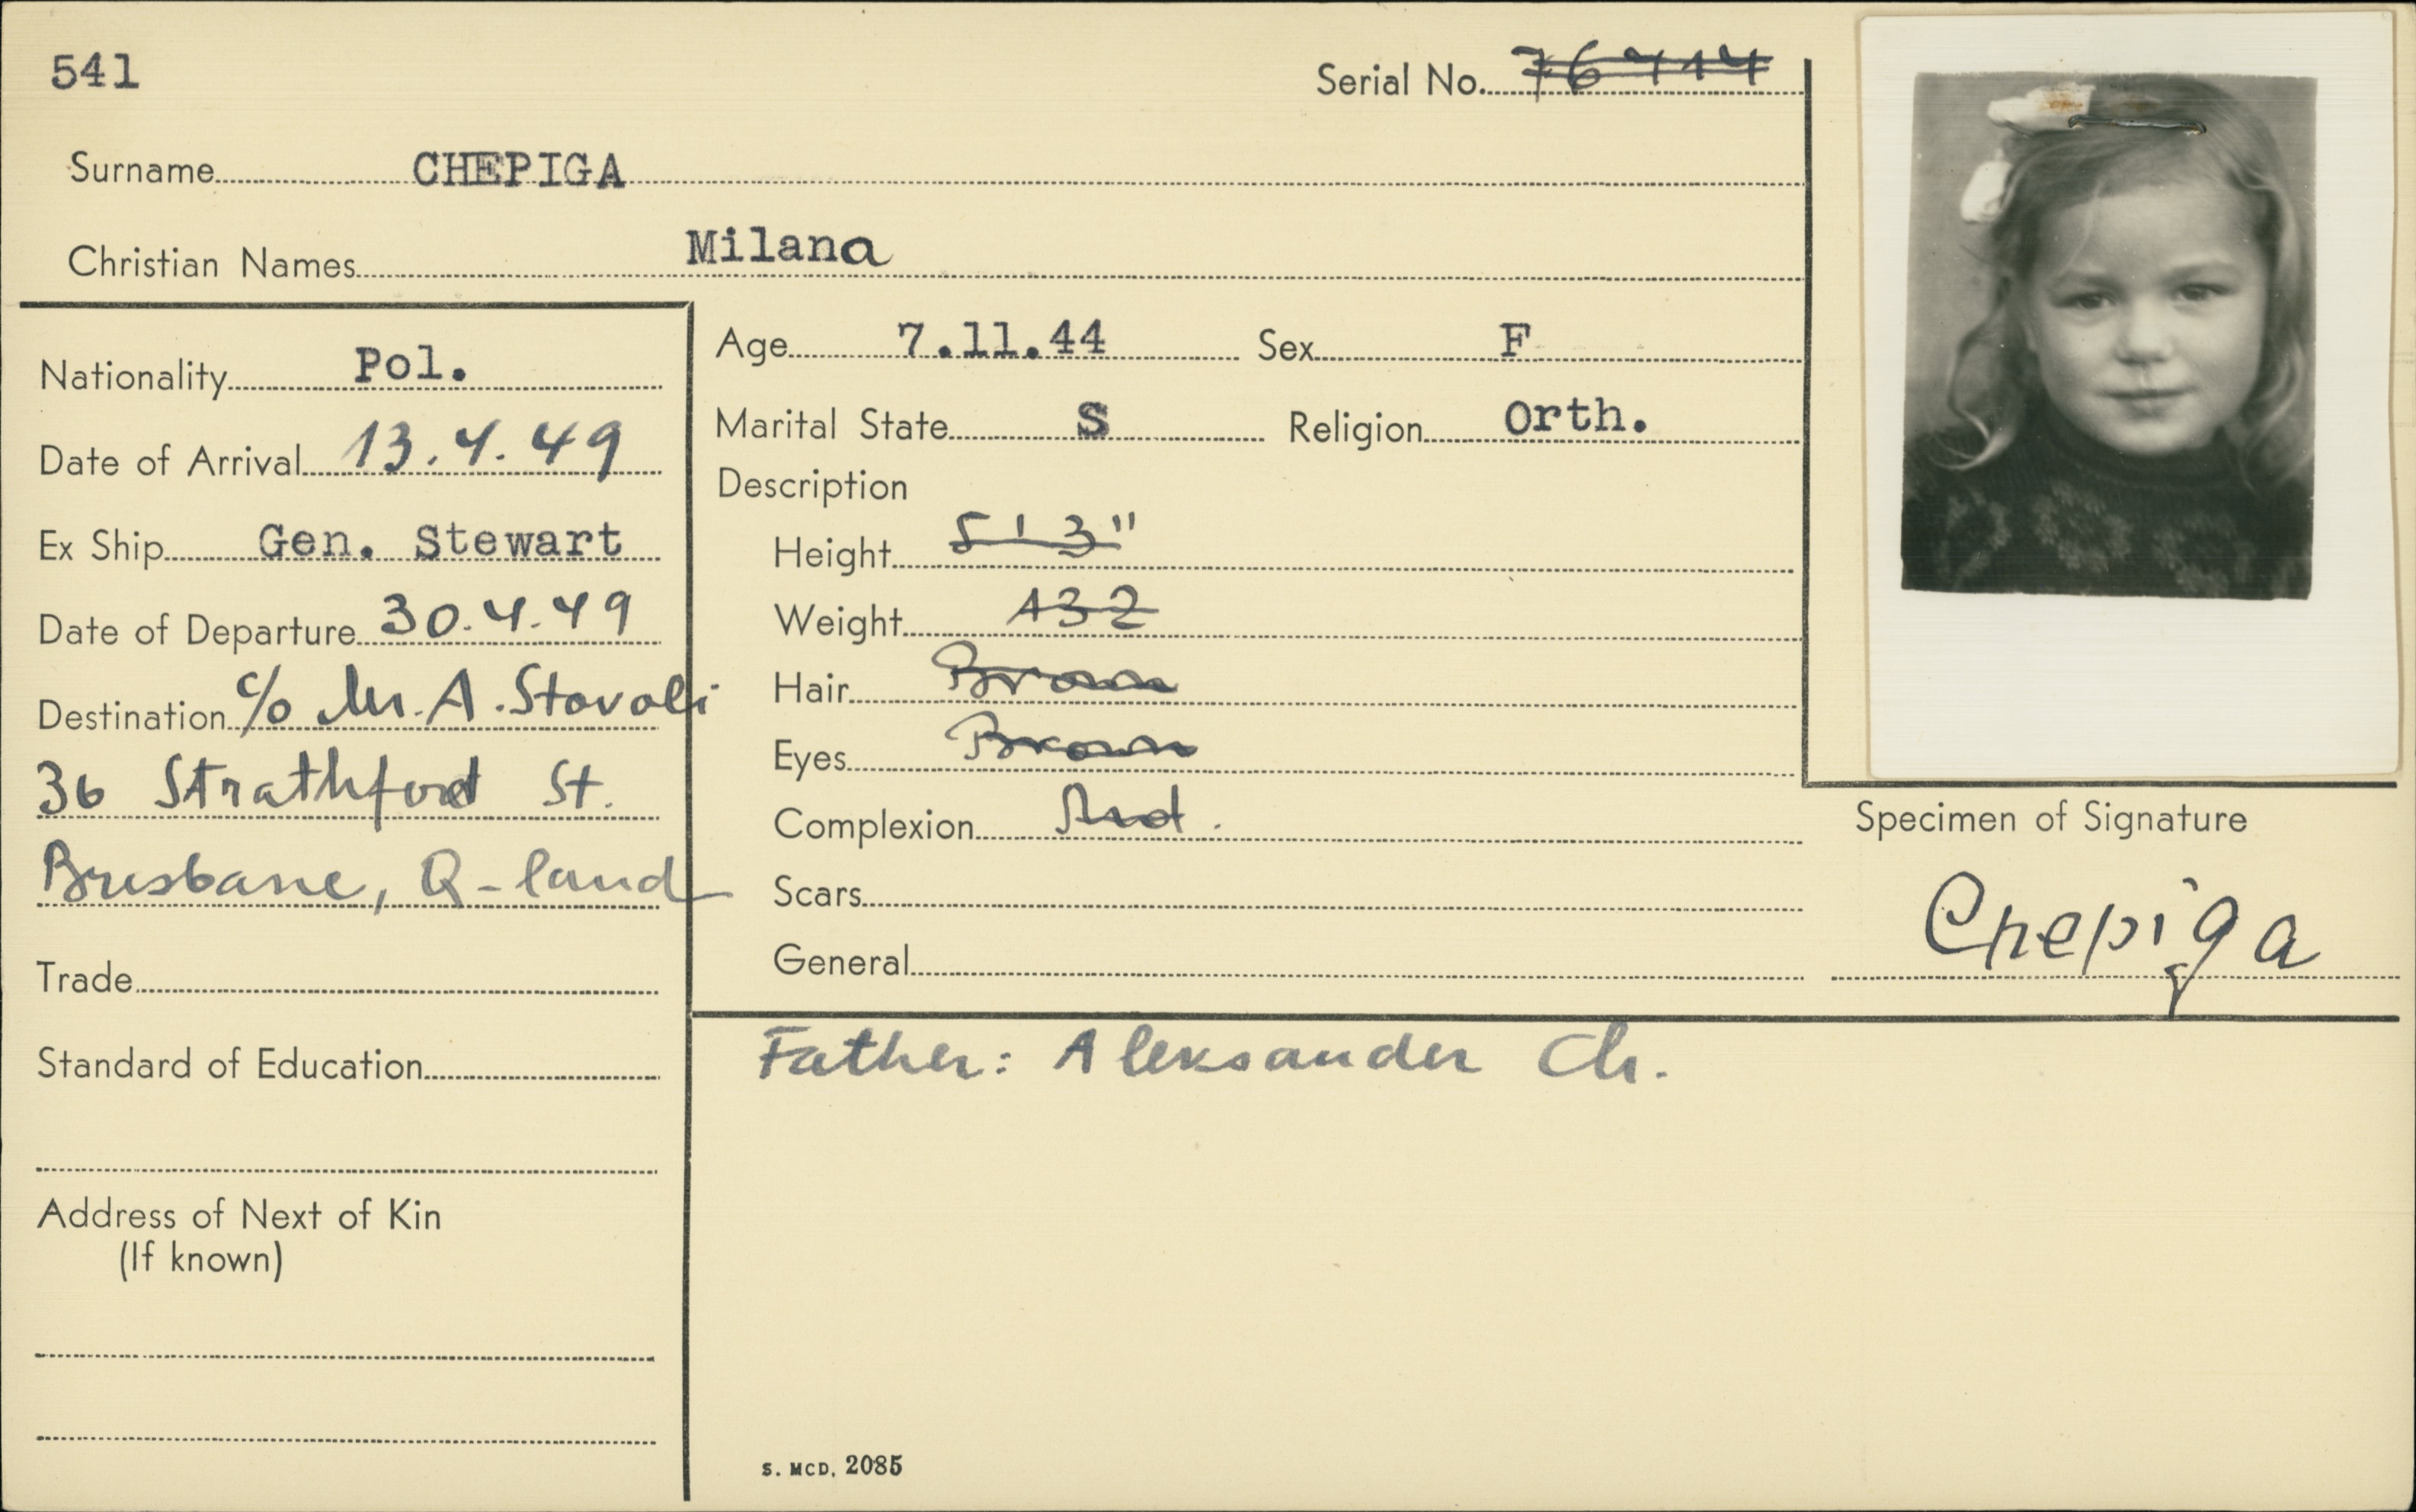 541
Serial No. 76414
Surname CHEPIGA
Christian Names Milana
Nationality Pol.
Date of Arrival 13.4.49
Ex Ship Gen. Stewart
Date of Departure 30.4.49
Destination c/o Mr. A. Stovoli
36 Strathford St.
Brisbane, Q-land
Trade
Standard of Education
Address of Next of Kin
(If known)
Age 7.11.44 Sex F
Marital State S Religion Orth.
Description
Height 5'3"
Weight 132
Hair Brown
Eyes Brown
Complexion
Scars
General
Specimen of Signature
Chepiga
Father: Aleksander Ch.
S. MCD. 2085